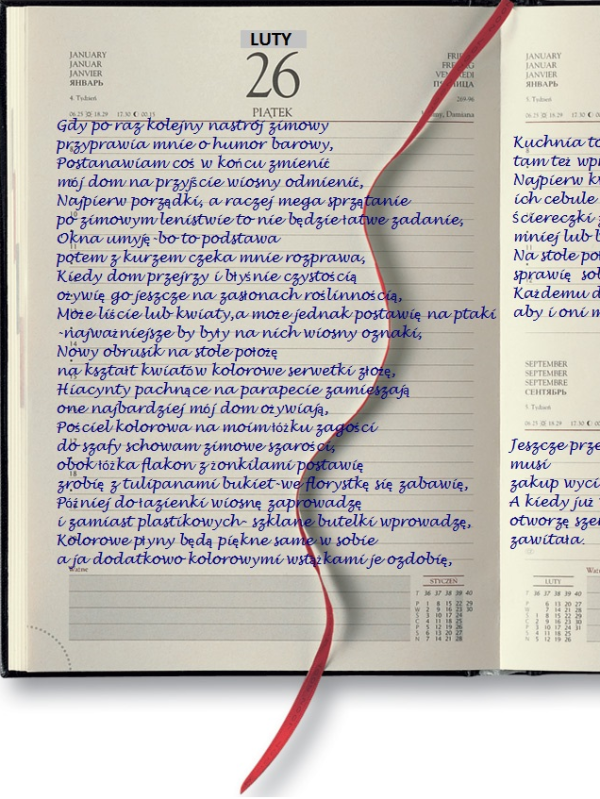 LUTY
JANUARY
JANUAR
JANVIER
ЯНВАРЬ
4. Tydzień
26
PIĄTEK
269-96
Gdy po raz kolejny nastrój zimowy
przyprawia mnie o humor barowy,
Postanawiam coś w końcu zmienić
mój dom na przyjście wiosny odmienić,
Najpierw porządki, a raczej mega sprzątanie
po zimowym lenistwie to nie będzie łatwe zadanie,
Okna umyję -bo to podstawa
potem z kurzem czeka mnie rozprawa,
Kiedy dom przejrzy i błyśnie czystością
ożywię go jeszcze na zasłonach roślinnością,
Może liście lub kwiaty,a może jednak postawię na ptaki
-najważniejsze by były na nich wiosny oznaki,
Nowy obrusik na stole położę
na kształt kwiatów kolorowe serwetki złożę,
Hiacynty pachnące na parapecie zamieszają
one najbardziej mój dom ożywiają,
Pościel kolorowa na moim łóżku zagości
do szafy schowam zimowe szarości,
obok łóżka flakon z żonkilami postawię
zrobię z tulipanami bukiet-we florystkę się zabawię,
Później do łazienki wiosnę zaprowadzę
i zamiast plastikowych- szklane butelki wprowadzę,
Kolorowe płyny będą piękne same w sobie
a ja dodatkowo kolorowymi wstążkami je ozdobię,
STYCZEŃ
T 36 37 38 39 40
JANUARY
JANUAR
JANVIER
ЯНВАРЬ
5. Tydzień
Kuchnia
tam też
Najpierw
ich cebule
Ściereczki
mniej lub
Na stole
sprawię
Każdemu
aby i oni
SEPTEMBER
SEPTEMBER
SEPTEMBRE
СЕНТЯБРЬ
5. Tydzień
Jeszcze
musi
zakup
A kiedy już
otworzę
zawitała.
LUTY